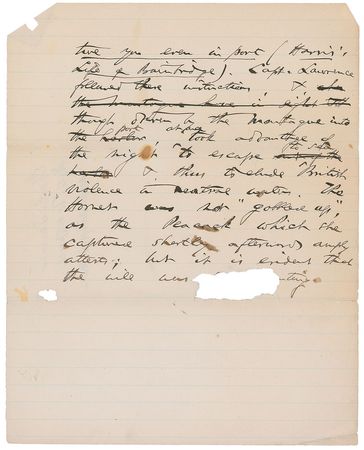 ture you even in port (Harris's
Life of Bainbridge). Capt. Lawrence
followed these instructions, &
the Montague hove in sight
though driven by the Montague into
port
the harbor, took advantage of
to sea
the night to escape out of the
& thus to elude British
violence in neutral water. The
Hornet was not "gobbled up,"
as the Peacock which she
captured shortly afterwards amply
attests; but it is evident that
the will was